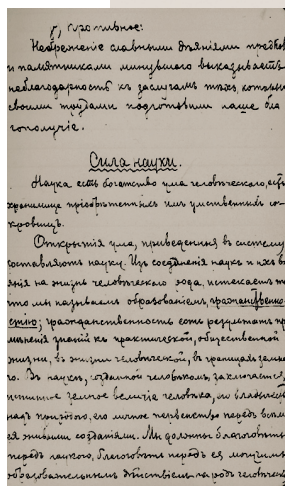 г, Противное:
Небрежение славными дѣяніями предков
и памятниками минувшаго выказываетъ
неблагодарность къ заслугамъ тѣхъ, которые
своими трудами подготовили наше бла
гополучіе.
Сила науки.
Наука есть богатство ума человѣческаго, есть
хранилище пріобрѣтенныхъ имъ умственныхъ со-
кровищъ.
Открытія ума, приведенныя въ систему
составляютъ науку. Изъ соединенія наукъ и ихъ влі
янія на жизнь человѣческаго рода, истекаетъ то
что мы называемъ образованіемъ, гражданственно
стію; гражданственность есть результатъ при
мѣненія знаній къ практической, общественной
жизни, въ жизни человѣческой, въ границахъ земна
го. Въ наукѣ, созданной человѣкомъ, заключается
истинное земное величіе человѣка, его владычество
надъ природою, его личное первенство передъ всѣми
ея живыми созданіями. Мы должны благоговѣть
передъ наукою, благоговѣть передъ ея могучимъ
образовательнымъ дѣйствіемъ на родъ человѣческ